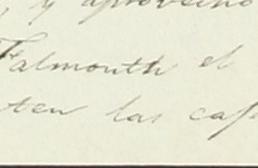 y aprovecho
Falmouth el
ten las caj